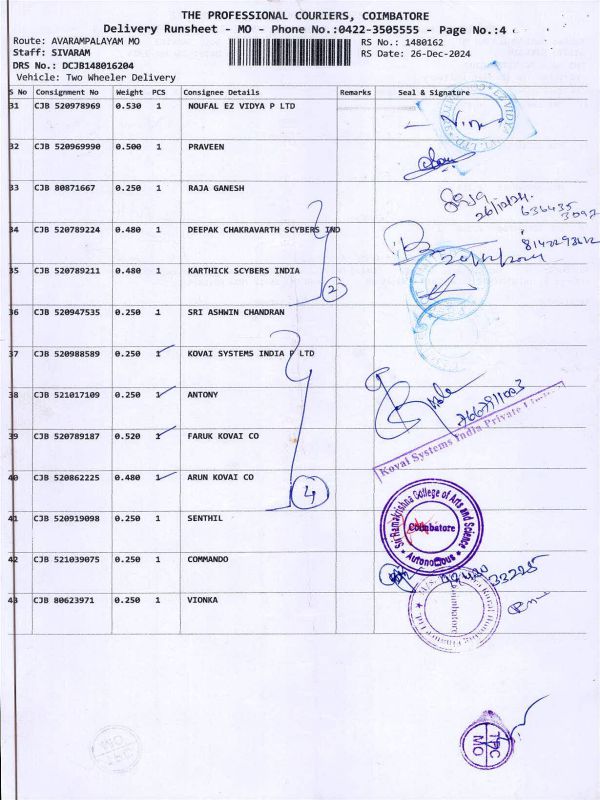 THE PROFESSIONAL COURIERS, COIMBATORE
Delivery Runsheet - MO - Phone No.:0422-3505555 - Page No.:4
Route: AVARAMPALAYAM MO RS No.: 1480162
Staff: SIVARAM RS Date: 26-Dec-2024
DRS No.: DCJB148016204
Vehicle: Two Wheeler Delivery
S No Consignment No Weight PCS Consignee Details Remarks Seal & Signature
31 CJB 520978969 0.530 1 NOUFAL EZ VIDYA P LTD
32 CJB 520969990 0.500 1 PRAVEEN
33 CJB 80871667 0.250 1 RAJA GANESH
26/12/24.
636435
3092
34 CJB 520789224 0.480 1 DEEPAK CHAKRAVARTH SCYBERS IND
26/12/2024
35 CJB 520789211 0.480 1 KARTHICK SCYBERS INDIA
2
36 CJB 520947535 0.250 1 SRI ASHWIN CHANDRAN
37 CJB 520988589 0.250 1 KOVAI SYSTEMS INDIA P LTD
38 CJB 521017109 0.250 1 ANTONY
7667911003
Kovai Systems India Private Limited
39 CJB 520789187 0.520 1 FARUK KOVAI CO
40 CJB 520862225 0.480 1 ARUN KOVAI CO
4
41 CJB 520919098 0.250 1 SENTHIL
Sri Ramakrishna College of Arts and Science
Coimbatore
Autonomous
42 CJB 521039075 0.250 1 COMMANDO
43 CJB 80623971 0.250 1 VIONKA
TPC
MO